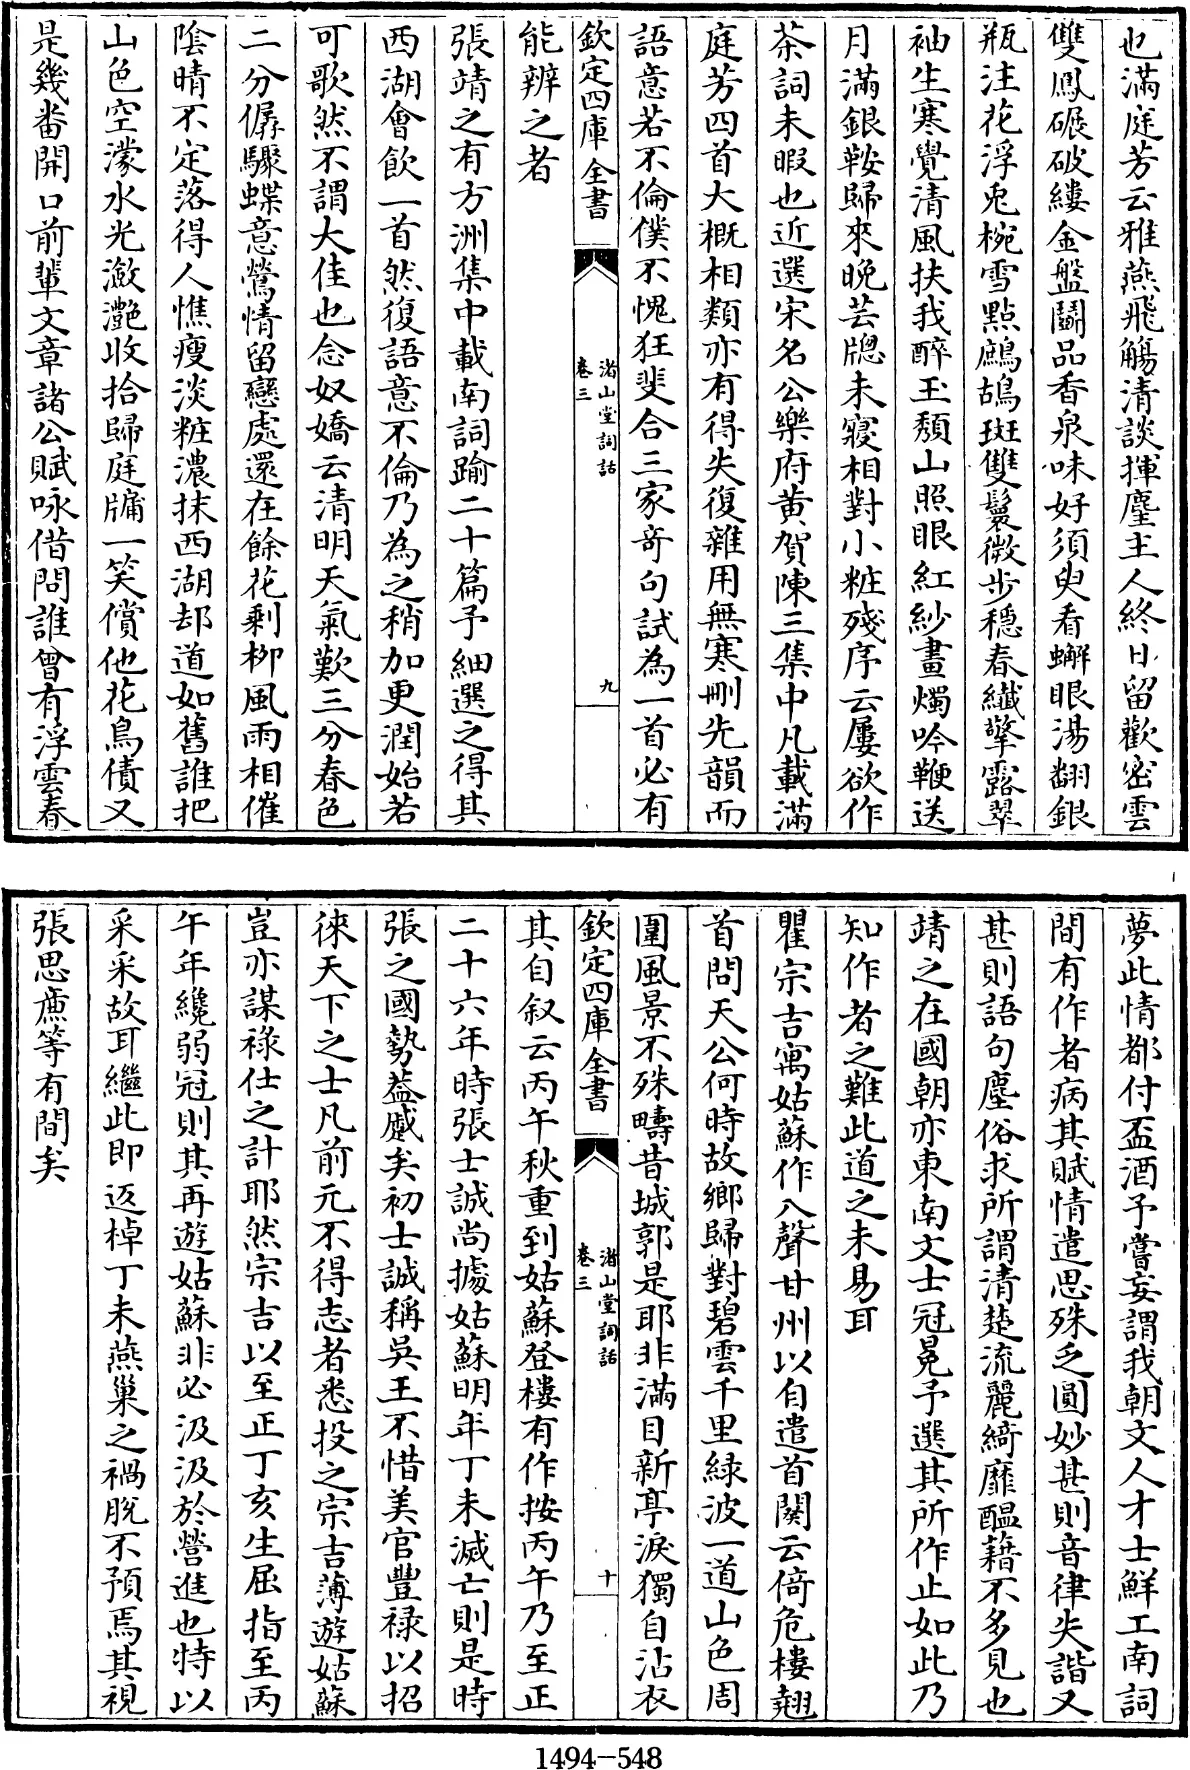 也滿庭芳云雅燕飛觴清談揮麈主人終日留歡密雲
雙鳳碾破縷金盤鬬品香泉味好須臾看蠏眼湯翻銀
瓶注花浮兎椀雪點鷓鴣斑雙鬟微步穩春纖擎露翠
袖生寒覺清風扶我醉玉頽山照眼紅紗畫燭吟鞭送
月滿銀鞍歸來晚芸牕未寢相對小粧殘序云屢欲作
茶詞未暇也近選宋名公樂府黄賀陳三集中凡載滿
庭芳四首大概相類亦有得失復雜用無寒刪先韻而
語意若不倫僕不愧狂斐合三家竒句試為一首必有
欽定四庫全書
渚山堂詞話
卷三
九
能辨之者
張靖之有方洲集中載南詞踰二十篇予細選之得其
西湖會飲一首然復語意不倫乃為之稍加更潤始若
可歌然不謂大佳也念奴嬌云清明天氣歎三分春色
二分僝驟蝶意鶯情留戀處還在餘花剩栁風雨相催
陰晴不定落得人憔瘦淡粧濃抹西湖却道如舊誰把
山色空濛水光瀲灔收拾歸庭牗一笑償他花鳥債又
是幾畨開口前輩文章諸公賦咏借問誰曾有浮雲春
夢此情都付盃酒予嘗妄謂我朝文人才士鮮工南詞
間有作者病其賦情遣思殊乏圓妙甚則音律失諧又
甚則語句塵俗求所謂清楚流麗綺靡醖藉不多見也
靖之在國朝亦東南文士冠冕予選其所作止如此乃
知作者之難此道之未易耳
瞿宗吉寓姑蘇作八聲甘州以自遣首闋云倚危樓翹
首問天公何時故鄉歸對碧雲千里緑波一道山色周
圍風景不殊疇昔城郭是耶非滿目新亭淚獨自沾衣
欽定四庫全書
渚山堂詞話
卷三
十
其自叙云丙午秋重到姑蘇登樓有作按丙午乃至正
二十六年時張士誠尚據姑蘇明年丁未滅亡則是時
張之國勢益蹙矣初士誠稱吳王不惜美官豐禄以招
徠天下之士凡前元不得志者悉投之宗吉薄遊姑蘇
豈亦謀祿仕之計耶然宗吉以至正丁亥生屈指至丙
午年纔弱冠則其再遊姑蘇非必汲汲於營進也特以
采采故耳繼此即返棹丁未燕巢之禍脱不預焉其視
張思廉等有間矣
1494-548